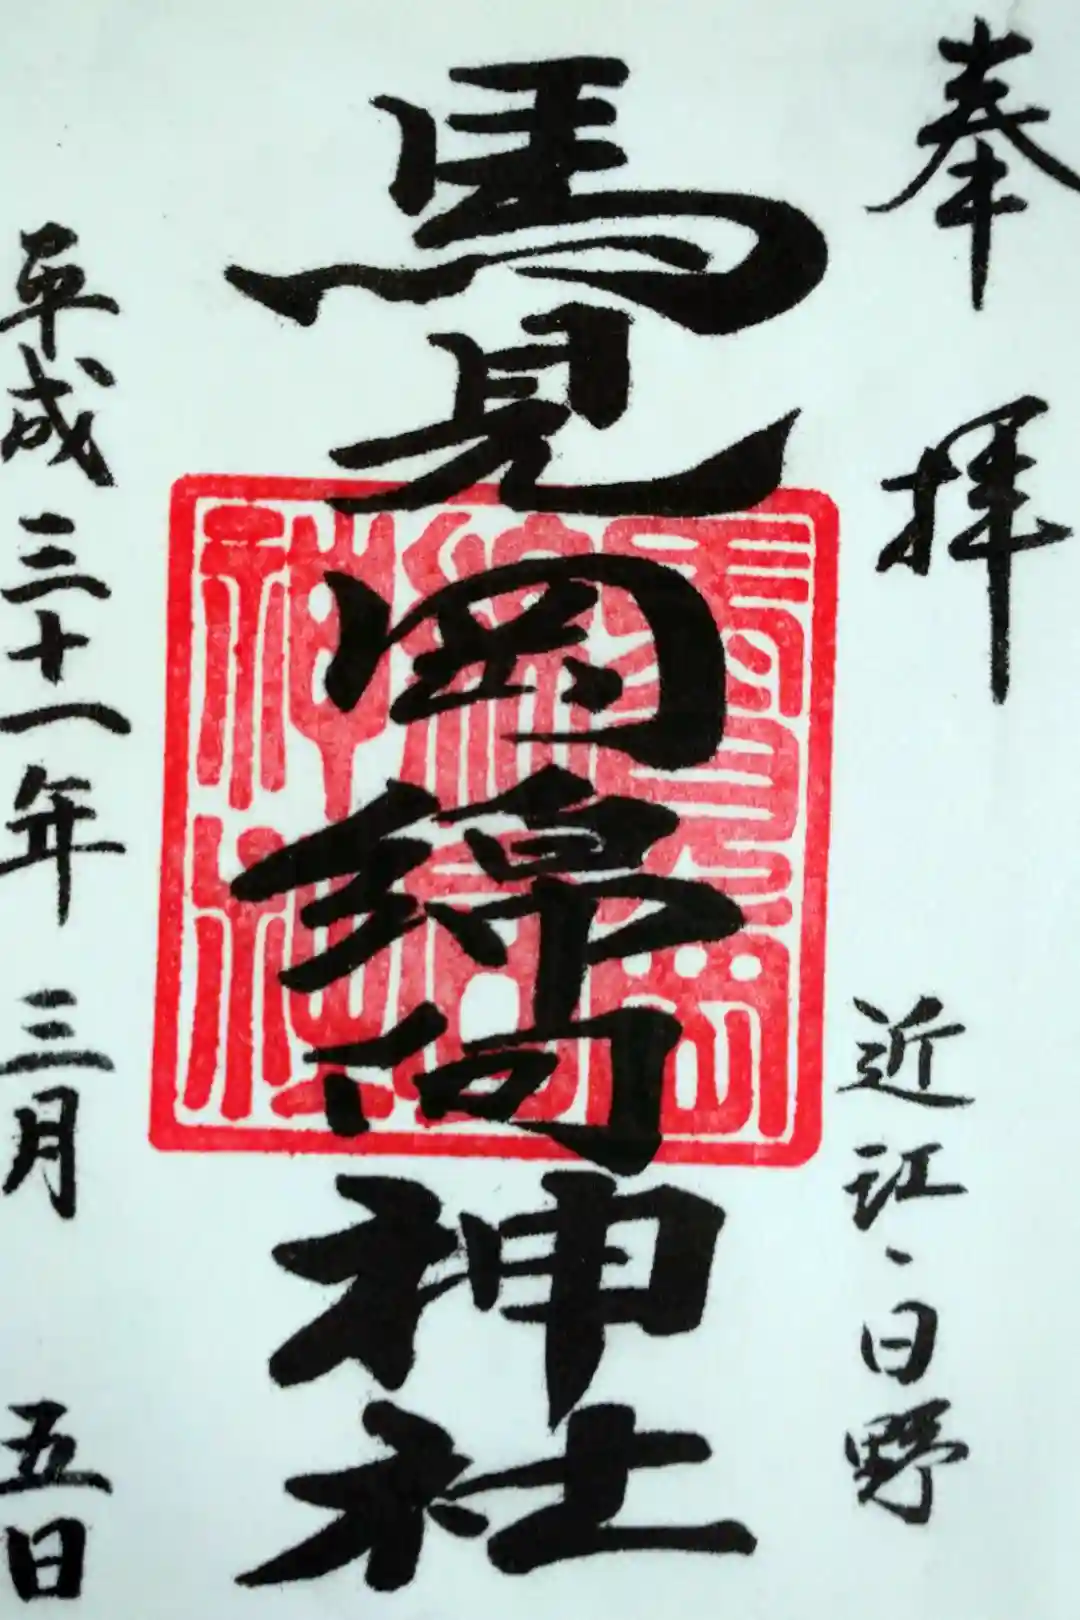 奉拝
近江、日野
馬見岡綿向神社
平成三十一年三月五日